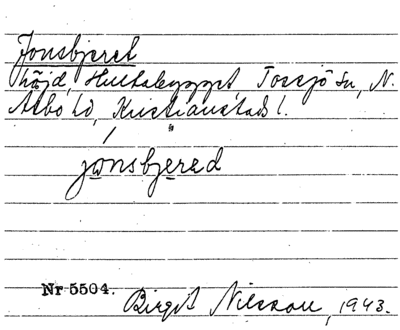 Jonsbjeret
höjd, Hultabygget, Tossjö sn, N.
Åsbo hd, Kristianstads l.
jonsbjerəd
Nr 5504.
Birgit Nilsson, 1943.